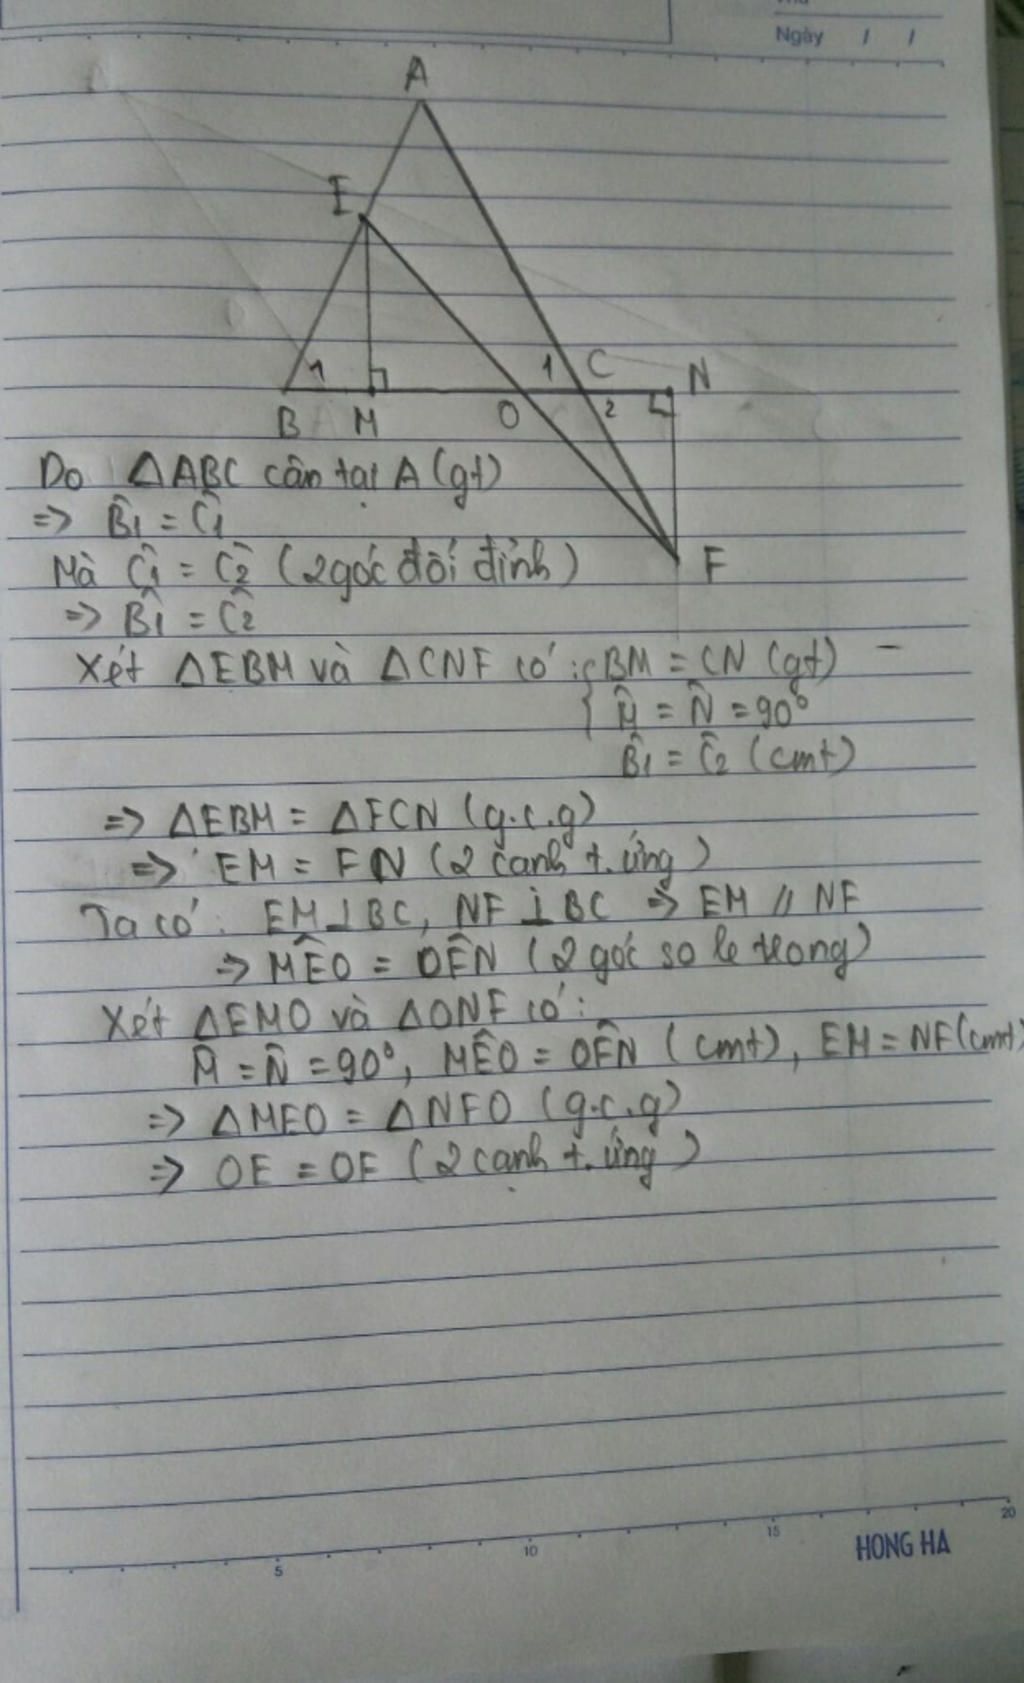 Ngày / /
A
E
1
1 C N
B M O 2
F
Do △ABC cân tại A (gt)
=> B̂1 = Ĉ1
Mà Ĉ1 = Ĉ2 (2 góc đối đỉnh)
=> B̂1 = Ĉ2
Xét △EBM và △CNF có: { BM = CN (gt)
M̂ = N̂ = 90°
B̂1 = Ĉ2 (cmt)
=> △EBM = △FCN (g.c.g)
=> EM = FN (2 cạnh t. ứng)
Ta có: EM ⊥ BC, NF ⊥ BC => EM // NF
=> MÊO = OF̂N (2 góc so le trong)
Xét △EMO và △ONF có:
M̂ = N̂ = 90°, MÊO = OF̂N (cmt), EM = NF (cmt)
=> △MEO = △NFO (g.c.g)
=> OE = OF (2 cạnh t. ứng)
5 10 15 20
HONG HA